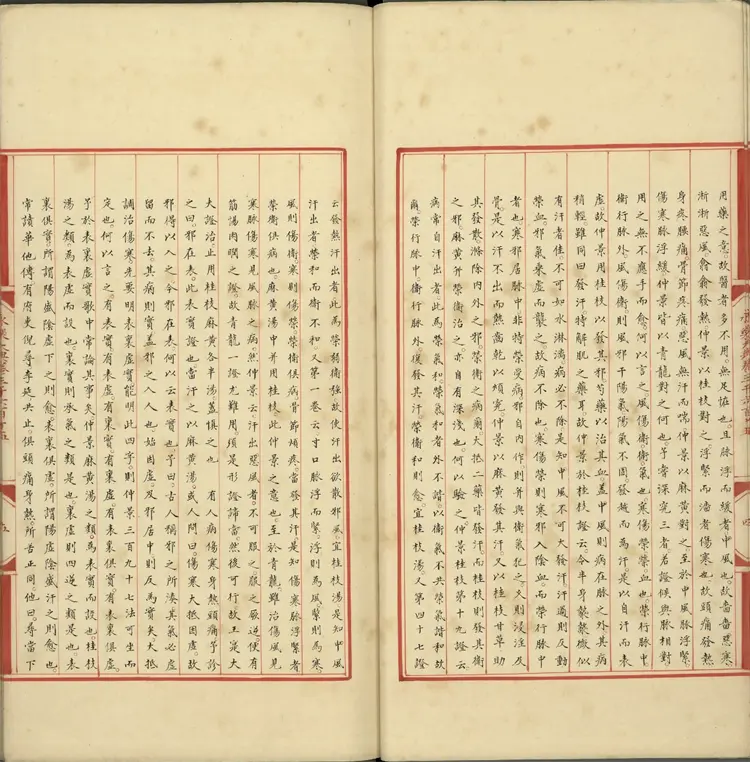 用藥之意故醫者多不用無足恠也且脉浮而緩者中風也故嗇嗇惡寒
淅淅惡風翕翕發熱仲景以桂枝對之浮緊而濇者傷寒也故頭痛發熱
身疼腰痛骨節疼痛惡風無汗而喘仲景以麻黃對之至於中風脉浮緊
傷寒脉浮緩仲景皆以青龍對之何也予嘗深究三者若證候與脉相對
用之無不應手而愈何以言之風傷衛衛氣也寒傷榮榮血也榮行脉中
衛行脉外風傷衛則風邪干陽氣陽氣不固發越而為汗是以自汗而表
虛故仲景用桂枝以發其邪芍藥以治其血蓋中風則病在脉之外其病
稍輕雖同曰發汗特解肌之藥耳故仲景於桂枝證云令半身漐漐微似
有汗者佳不可如水淋漓病必不除是知中風不可大發汗汗過則反動
榮血邪氣乘虛而襲之故病不除也寒傷榮則寒邪入陰血而榮行脉中
者也寒邪居脉中非特榮受病邪自內作則并與衛氣犯之久則浸淫及
骨是以汗不出而熱齒乾以煩寃仲景以麻黃發其汗又以桂枝甘草助
其發散滌除內外之邪榮衛之病爾大抵二藥皆發汗而桂枝則發其衛
之邪麻黃并榮衛治之亦自有深淺也何以驗之仲景桂枝第十九證云
病常自汗出者此為榮氣和榮氣和者外不諧以衛氣不共榮氣諧和故
爾榮行脉中衛行脉外復發其汗榮衛和則愈宜桂枝湯又第四十七證
云發熱汗出者此為榮弱衛強故使汗出欲救邪風宜桂枝湯是知中風
汗出者榮和而衛不和又第一卷云寸口脉浮而緊浮則為風緊則為寒
風則傷衛寒則傷榮榮衛俱病骨節煩疼當發其汗是知傷寒脉浮緊者
榮衛俱病也麻黃湯中并用桂枝此仲景之意也至於青龍雖治傷風見
寒脉傷寒見風脉之病然仲景云汗出惡風者不可服之服之厥逆便有
筋惕肉瞤之證故青龍一證尤難用須是形證諦當然後可行故王寔大
大證治止用桂枝麻黃各半湯蓋慎之也 有人病傷寒身熱頭痛予診
之曰邪在表此表實證也當汗之以麻黃湯或人問曰傷寒大抵因虛故
邪得以入之今邪在表何以云表實也予曰古人稱邪之所湊其氣必虛
留而不去其病則實蓋邪之入人也始因虛及邪居中則反為實矣大抵
調治傷寒先要明表裏虛實能明此四字則仲景三百九十七法可坐而
定也何以言之有表實有表虛有裏實有裏虛有表裏俱實有表裏俱虛
予於表裏虛實歌中常論其事矣仲景麻黃湯之類為表實而設也桂枝
湯之類為表虛而設也裏實則承氣之類是也裏虛則四逆之類是也表
裏俱實所謂陽盛陰虛下之則愈表裏俱虛所謂陽虛陰盛汗之則愈也
常讀華他傳有府吏倪尋李延共止俱頭痛身熱所苦正同他曰尋當下